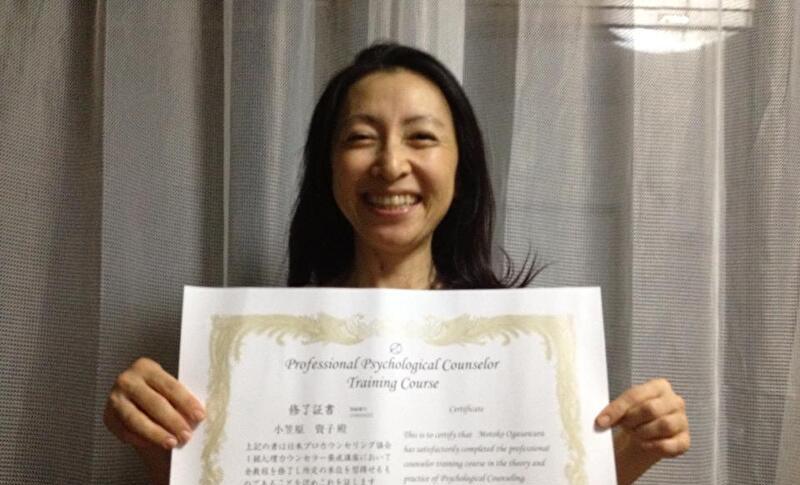 Professional Psychological Counselor
Training Course
修了証書
小笠原 資子殿
上記の者は日本プロカウンセリング協会
1級心理カウンセラー養成講座において
全教程を修了し所定の単位を習得せるも
のであることを認めこれを証します
Certificate
This is to certify that Motoko Ogasawara
has satisfactorily completed the professional
counselor training course in the theory and
practice of Psychological Counseling.